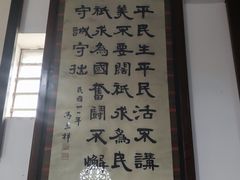 平民生平民活不講
美不要闊祇求為民
祇求為國奮鬥不懈
守誠守拙
民國一年
馮玉祥